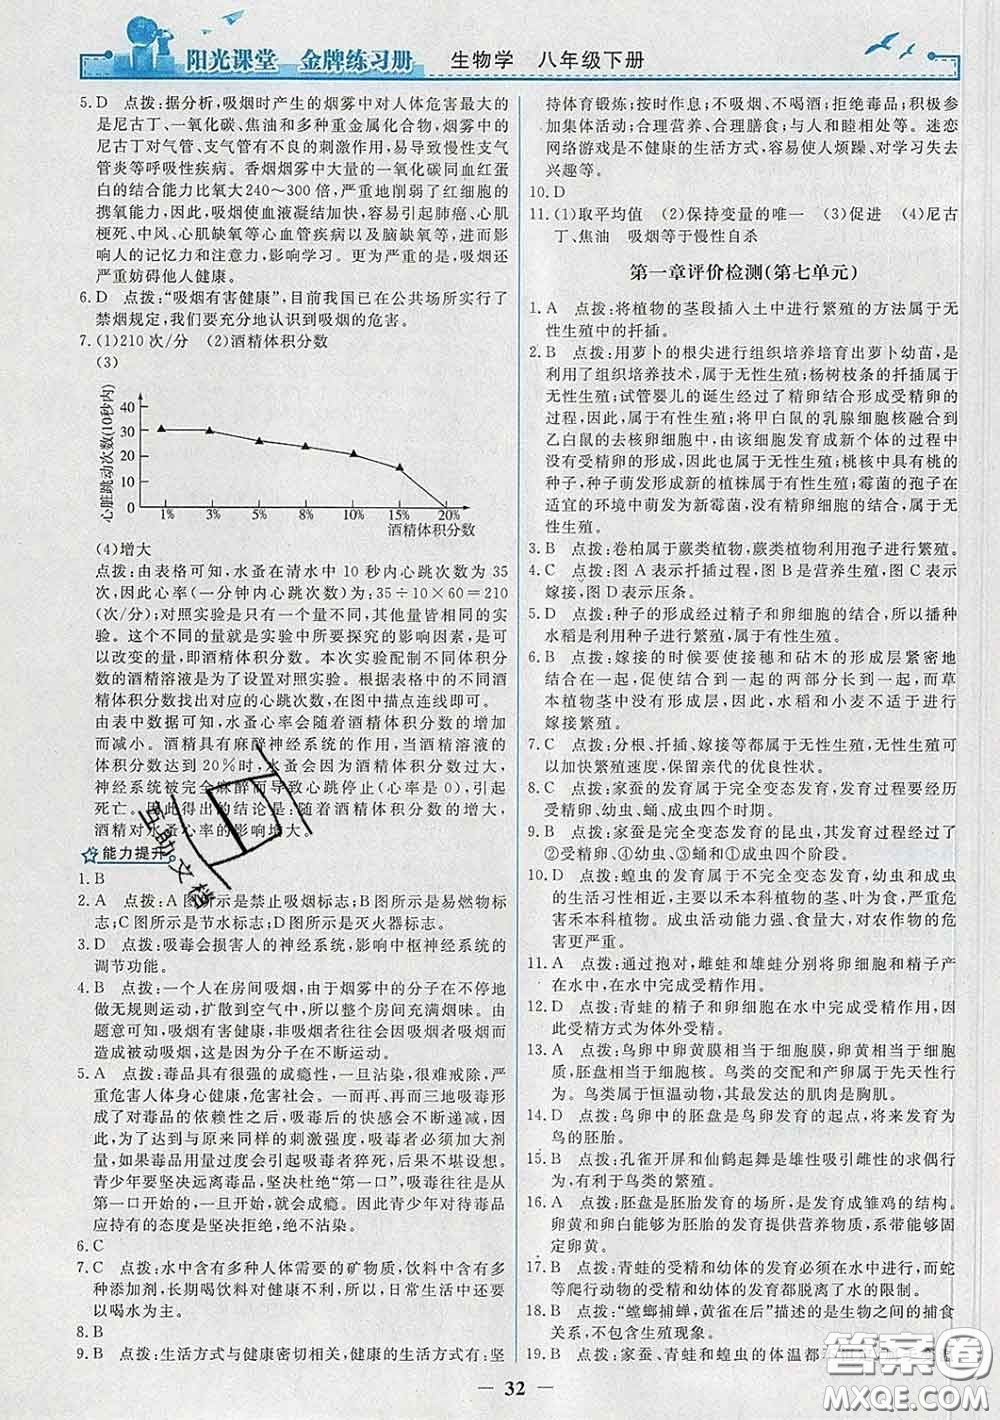 阳光课堂 金牌练习册 生物学 八年级下册
5. D 点拨:据分析,吸烟时产生的烟雾中对人体危害最大的
是尼古丁、一氧化碳、焦油和多种重金属化合物,烟雾中的
尼古丁对气管、支气管有不良的刺激作用,易导致慢性支气
管炎等呼吸性疾病。香烟烟雾中大量的一氧化碳同血红蛋
白的结合能力比氧大240~300倍,严重地削弱了红细胞的
携氧能力,因此,吸烟使血液凝结加快,容易引起肺癌、心肌
梗死、中风、心肌缺氧等心血管疾病以及呼吸系统疾病,影
响人的记忆力和注意力,影响学习。更为严重的是,吸烟还
严重妨碍他人健康。
6. D 点拨:“吸烟有害健康”,目前我国已在公共场所实行了
禁烟规定,我们要充分地认识到吸烟的危害。
7. (1)210次/分 (2)酒精体积分数
(3)
心脏跳动次数(10秒内)
40
30
20
10
0
1% 3% 5% 8% 10% 15% 20%
酒精体积分数
(4)增大
点拨:由表格可知,水蚤在清水中10秒内心跳次数为35
次,因此心率(一分钟内心跳次数)为:35÷10×60=210
(次/分);对照实验是只有一个量不同,其他量皆相同的实
验。这个不同的量就是实验中所要探究的影响因素,是可
以改变的量,即酒精体积分数。本次实验配制不同体积分
数的酒精溶液是为了设置对照实验。根据表格中的不同酒
精体积分数找出对应的心跳次数,在图中描点连线即可。
由表中数据可知,水蚤心率会随着酒精体积分数的增加
而减小。酒精具有麻醉神经系统的作用,当酒精溶液的
体积分数达到20%时,水蚤会因为酒精体积分数过大,
神经系统被完全麻醉而导致心跳停止(心率是0),引起
死亡。因此得出的结论是:随着酒精体积分数的增大,
酒精对水蚤心率的影响增大。
能力提升
1. B
2. A 点拨:A图所示是禁止吸烟标志;B图所示是易燃物标
志;C图所示是节水标志;D图所示是灭火器标志。
3. D 点拨:吸毒会损害人的神经系统,影响中枢神经系统的
调节功能。
4. B 点拨:一个人在房间吸烟,由于烟雾中的分子在不停地
做无规则运动,扩散到空气中,所以整个房间充满烟味。由
题意可知,吸烟有害健康,非吸烟者往往会因吸烟者吸烟而
造成被动吸烟,这是因为分子在不断运动。
5. A 点拨:毒品具有很强的成瘾性,一旦沾染,很难戒除,严
重危害人体身心健康,危害社会。一而再、再而三地吸毒,形
成了对毒品的依赖性之后,吸毒后的快感会不断递减,因
此,为了达到与原来同样的刺激强度,吸毒者必须不断加大剂
量,如果毒品用量过度会引起吸毒者猝死,后果不堪设想。
青少年要坚决远离毒品,坚决杜绝“第一口”,戒毒往往是从
第一口开始的,一旦开始,就会成瘾。因此青少年对待毒品
应持有的态度是坚决拒绝,绝不沾染。
6. C
7. C 点拨:水中含有多种人体需要的矿物质,饮料中含有多
种添加剂,长期喝饮料对健康不利,所以,日常生活中还要
以喝水为主。
8. B
9. B 点拨:生活方式与健康密切相关,健康的生活方式有:坚
持体育锻炼;按时作息;不吸烟、不喝酒;拒绝毒品;积极参
加集体活动;合理营养、合理膳食;与人和睦相处等。迷恋
网络游戏是不健康的生活方式,容易使人烦躁、对学习失去
兴趣等。
10. D
11. (1)取平均值 (2)保持变量的唯一 (3)促进 (4)尼古
丁、焦油 吸烟等于慢性自杀
第一章评价检测(第七单元)
1. A 点拨:将植物的茎段插入土中进行繁殖的方法属于无
性生殖中的扦插。
2. B 点拨:用萝卜的根尖进行组织培养培育出萝卜幼苗,是
利用了组织培养技术,属于无性生殖;杨树枝条的扦插属于
无性生殖;试管婴儿的诞生经过了精卵结合形成受精卵的
过程,因此,属于有性生殖;将甲白鼠的乳腺细胞核融合到
乙白鼠的去核卵细胞中,由该细胞发育成新个体的过程中
没有受精卵的形成,因此也属于无性生殖;桃核中具有桃的
种子,种子萌发形成新的植株属于有性生殖;霉菌的孢子在
适宜的环境中萌发为新霉菌,没有经过细胞的结合,属于无
性生殖。
3. B 点拨:卷柏属于蕨类植物,蕨类植物利用孢子进行繁殖。
4. C 点拨:图A表示扦插过程,图B是营养生殖,图C表示
嫁接,图D表示压条。
5. D 点拨:种子的形成经过精子和卵细胞的结合,所以播种
水稻是利用种子进行繁殖,属于有性生殖。
6. B 点拨:嫁接的时候要使接穗和砧木的形成层紧密地
结合在一起,促使结合在一起的两部分长到一起,而草
本植物茎中没有形成层,因此,水稻和小麦不适于进行
嫁接繁殖。
7. C 点拨:分根、扦插、嫁接等都属于无性生殖,无性生殖可
以加快繁殖速度,保留亲代的优良性状。
8. C 点拨:家蚕的发育属于完全变态发育,发育过程要经历
受精卵、幼虫、蛹、成虫四个时期。
9. B 点拨:家蚕是完全变态发育的昆虫,其发育过程经过了
②受精卵、④幼虫、③蛹和①成虫四个阶段。
10. D 点拨:蝗虫的发育属于不完全变态发育,幼虫和成虫
的生活习性相近,主要以禾本科植物的茎、叶为食,严重
危害禾本科植物。成虫活动能力强、食量大,对农作物的危
害更严重。
11. A 点拨:通过抱对,雌蛙和雄蛙分别将卵细胞和精子产
在水中,在水中完成受精作用。
12. D 点拨:青蛙的精子和卵细胞在水中完成受精作用,因
此受精方式为体外受精。
13. A 点拨:鸟卵中卵黄膜相当于细胞膜,卵黄相当于细胞
质,胚盘相当于细胞核。鸟类的交配和产卵属于先天性行
为。鸟类属于恒温动物,其最发达的肌肉是胸肌。
14. D 点拨:鸟卵中的胚盘是鸟卵发育的起点,将来发育为
鸟的胚胎。
15. B 点拨:孔雀开屏和仙鹤起舞是雄性吸引雌性的求偶行
为,有利于繁殖。
16. A 点拨:胚盘是胚胎发育的场所,是发育成雏鸡的结构。
卵黄和卵白能够为胚胎的发育提供营养物质,系带能够固
定卵黄。
17. B 点拨:青蛙的受精和幼体的发育必须在水中进行,而蛇
等爬行动物的受精和幼体的发育都脱离了水的限制。
18. B 点拨:“螳螂捕蝉,黄雀在后”描述的是生物之间的捕食
关系,不包含生殖现象。
19. B 点拨:家蚕、青蛙和蝗虫的体温都
32
互助文档
答案圈
MXQE.COM